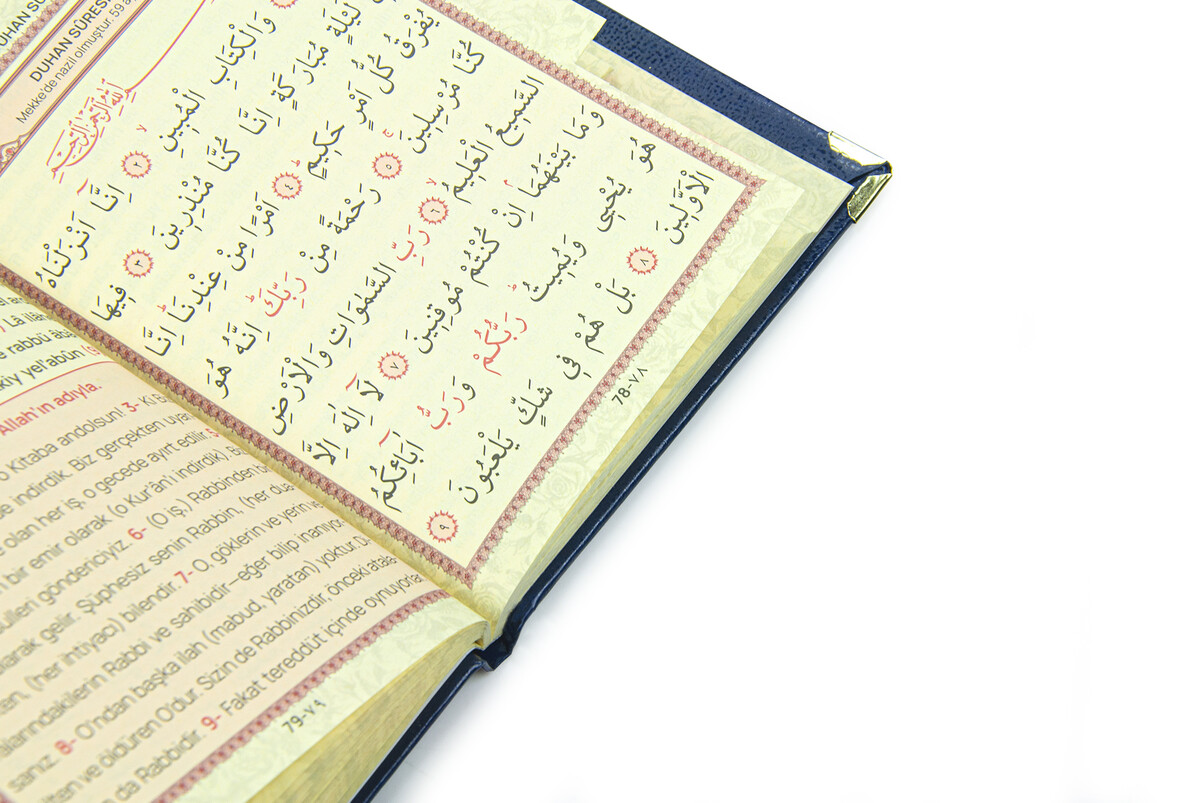 DUHAN SÛRESİ
Mekke'de nazil olmuştur. 59
وَالْكِتَابِ الْمُبِينِ ﴿٢﴾ اِنَّٓا اَنْزَلْنَاهُ
لَيْلَةٍ مُبَارَكَةٍ اِنَّا كُنَّا مُنْذِرِينَ ﴿٣﴾ فِيهَا
يُفْرَقُ كُلُّ اَمْرٍ حَكِيمٍ ﴿٤﴾ اَمْرًا مِنْ عِنْدِنَا اِنَّا
كُنَّا مُرْسِلِينَ ﴿٥﴾ رَحْمَةً مِنْ رَبِّكَ اِنَّهُ هُوَ
السَّمِيعُ الْعَلِيمُ ﴿٦﴾ رَبِّ السَّمٰوَاتِ وَالْاَرْضِ
وَمَا بَيْنَهُمَا اِنْ كُنْتُمْ مُوقِنِينَ ﴿٧﴾ لَٓا اِلٰهَ اِلَّا
هُوَ يُحْيِى وَيُمِيتُ رَبُّكُمْ وَرَبُّ اٰبَٓائِكُمُ
الْاَوَّلِينَ ﴿٨﴾ بَلْ هُمْ فِى شَكٍّ يَلْعَبُونَ ﴿٩﴾
78-٧٨
Lâ ilâ
rabbü âbâ
yel'abûn
Allah'ın adıyla.
o Kitaba andolsun! 3- Ki Bi
de indirdik. Biz gerçekten uyar
olan her iş, o gecede ayırt edilir.
bir emir olarak (o Kur'ân'ı indirdik). Bi
gönderici​yiz. 6- (O iş,) Rabbinden
olarak gelir. Şüphesiz senin Rabbin, (her dua
(her ihtiyacı) bilendir. 7- O, göklerin ve yerin ve
Rabbi ve sahibidir—eğer bilip inanıyor
sanız. 8- O'ndan başka ilah (mabud, yaratan) yoktur.
ve öldüren O'dur. Sizin de Rabbinizdir, önceki atala
da Rabbidir. 9- Fakat tereddüt içinde oynuyorlar.
79-٧٩